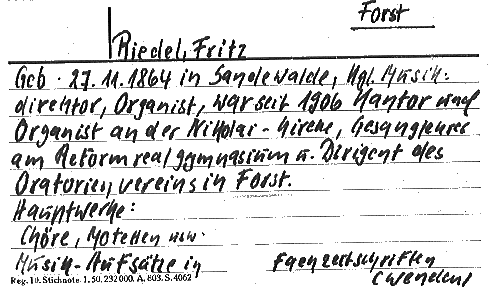 Forst
Riedel, Fritz
Geb. 27.11.1864 in Sandewalde, Kgl. Musik-
direktor, Organist, war seit 1906 Kantor und
Organist an der Nikolai-Kirche, Gesanglehrer
am Reformrealgymnasium u. Dirigent des
Oratorienvereins in Forst.
Hauptwerke:
Chöre, Motetten usw.
Musik-Aufsätze in Fachzeitschriften
(Wenden)
Reg. 10. Stichnote. 1. 50. 232000. A. 803. S. 4062